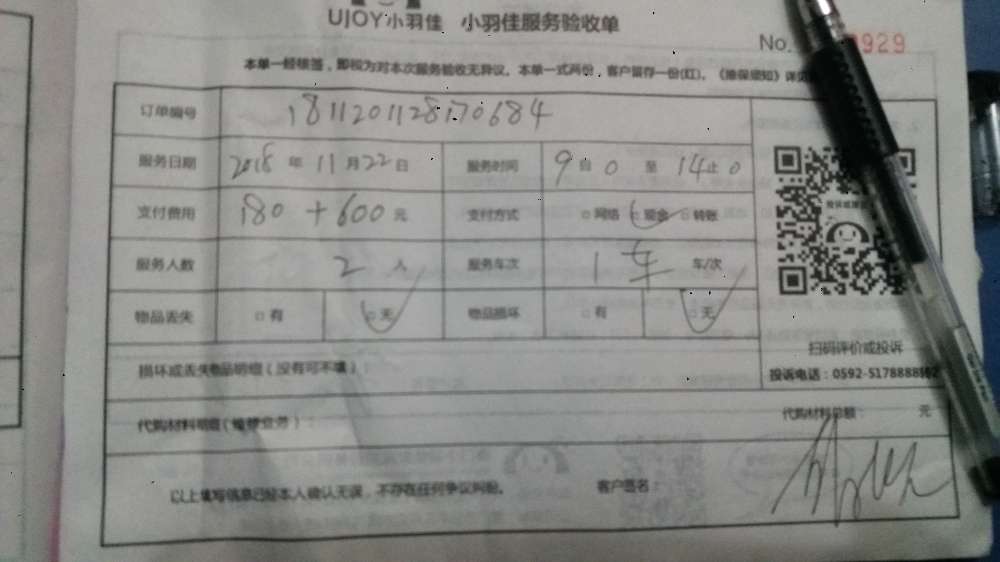 UJOY小羽佳 小羽佳服务验收单
No. 929
本单一经核签，即视为对本次服务验收无异议。本单一式两份，客户留存一份(红)。
订单编号 1811201128170684
服务日期 2018 年 11 月 22 日 服务时间 9 自 0 至 14 止 0
支付费用 180 + 600 元 支付方式 □网络 □现金 □转账
服务人数 2 人 服务车次 1 车 车/次
物品丢失 □有 □无 物品损坏 □有 □无
扫码评价或投诉
损坏或丢失物品明细（没有可不填）：
投诉电话：0592-5178888
代购材料明细（维修业务）： 代购材料总额： 元
以上填写信息已经本人确认无误，不存在任何争议纠纷。 客户签名：